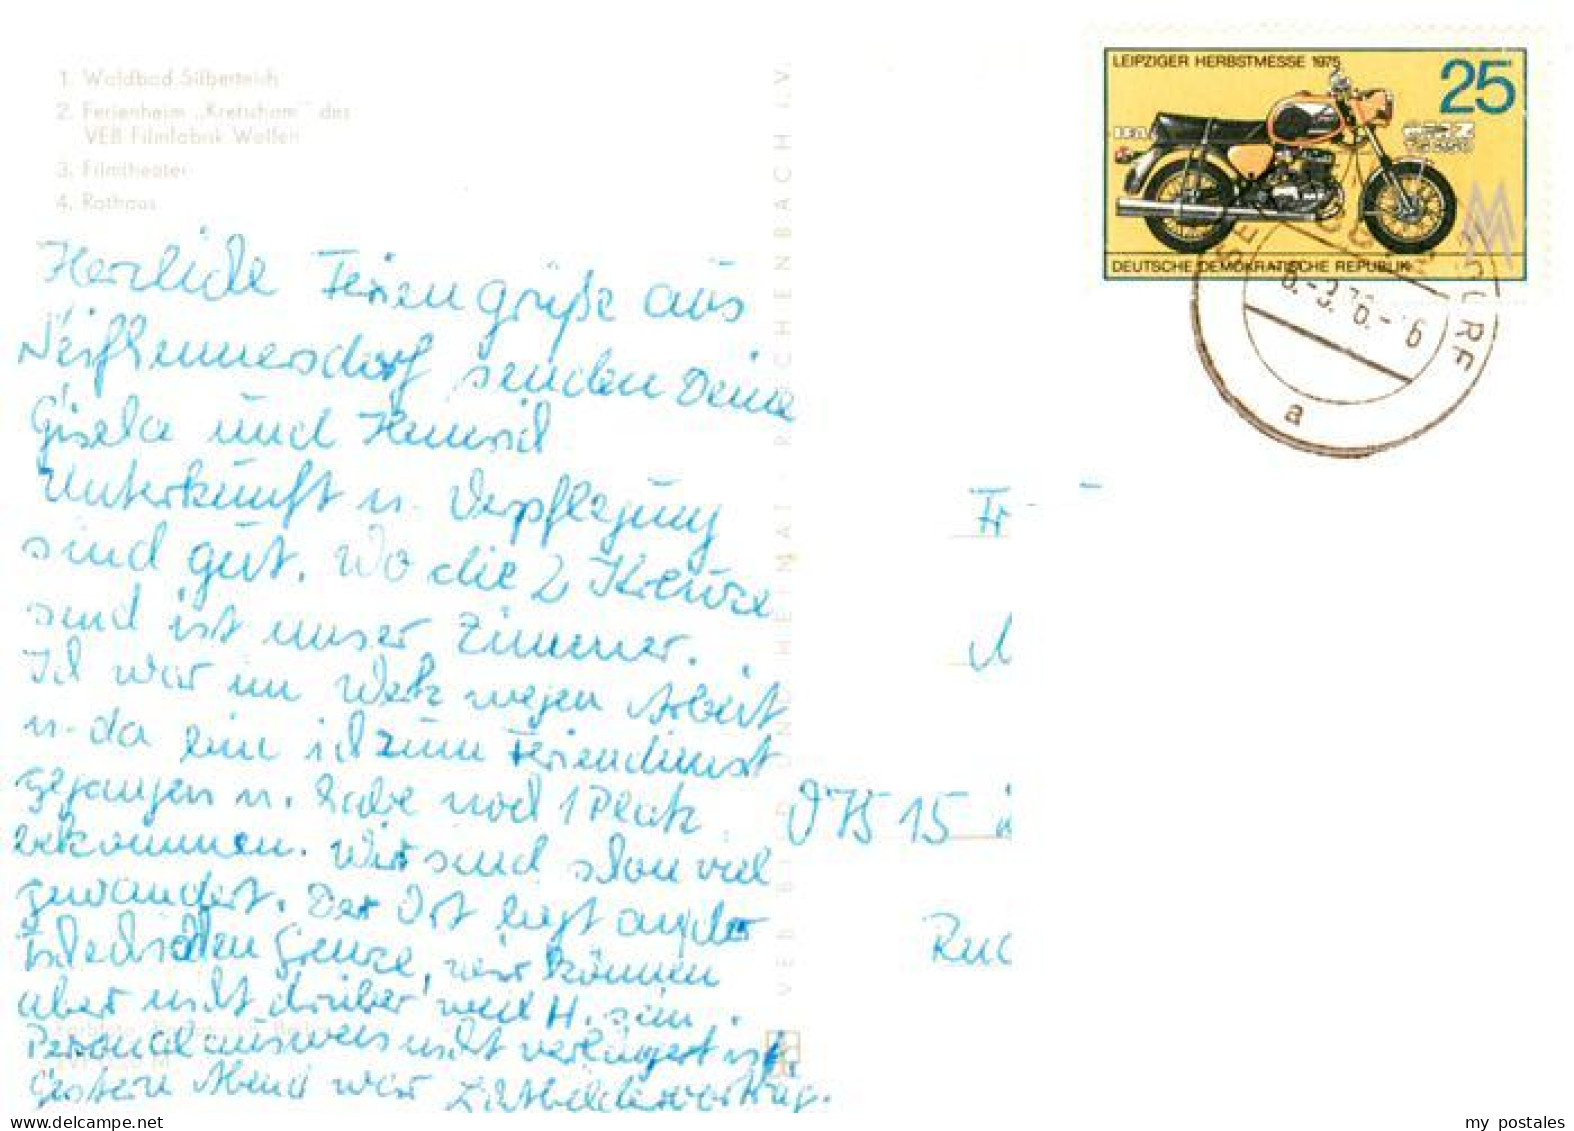 1. Waldbad Silberteich
2. Ferienheim „Kretscham" des
VEB Filmfabrik Wolfen
3. Filmtheater
4. Rathaus
LEIPZIGER HERBSTMESSE 1975
25
MZ
TS 250
DEUTSCHE DEMOKRATISCHE REPUBLIK
a
Herzliche Feriengrüße aus
Seifhennersdorf senden Deine
Gisela und
Unterkunft u. Verpflegung
sind gut. Wo die 2 Kreuze
sind ist unser Zimmer.
Ich war im Werk wegen Arbeit
u. da bin ich zum Feriendienst
gegangen u. habe noch 1 Platz
bekommen. Wir sind schon viel
gewandert. Der Ort liegt an der
Grenze, wir können
aber nicht drüber weil H. sein
Personalausweis nicht verlängert ist.
Gestern Abend war Lichtbildervortrag.
Fr
975 15
VEB BILD UND HEIMAT REICHENBACH I.V.
my postales